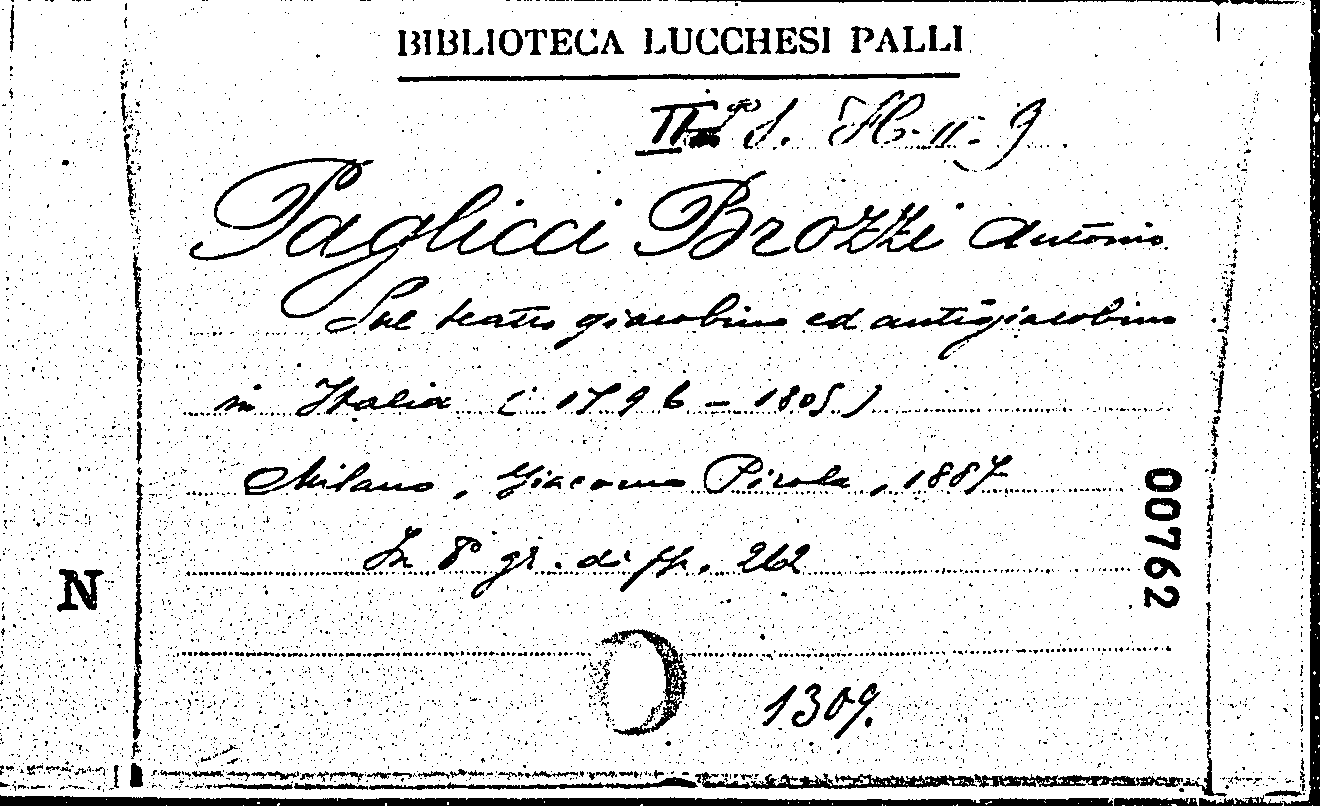 BIBLIOTECA LUCCHESI PALLI
II S. H-II-9
Pagliicci Brozzi Antonio
Sul teatro giacobino ed antigiacobino
in Italia (1796-1805)
Milano, Giacomo Pirola, 1887
In 8° gr. di pp. 262
00762
N
1309.